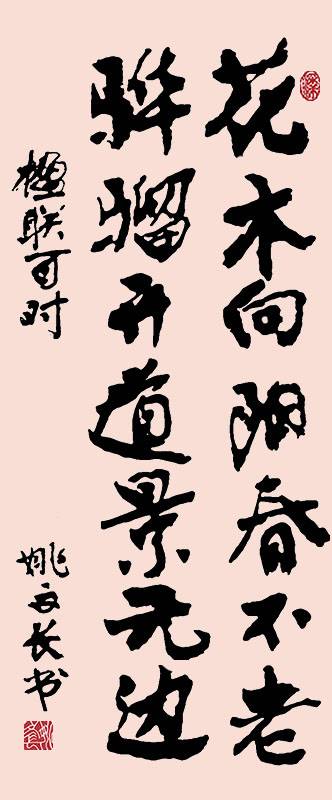 花木向阳春不老
骅骝开道景无边
楹联百对
姚 长书